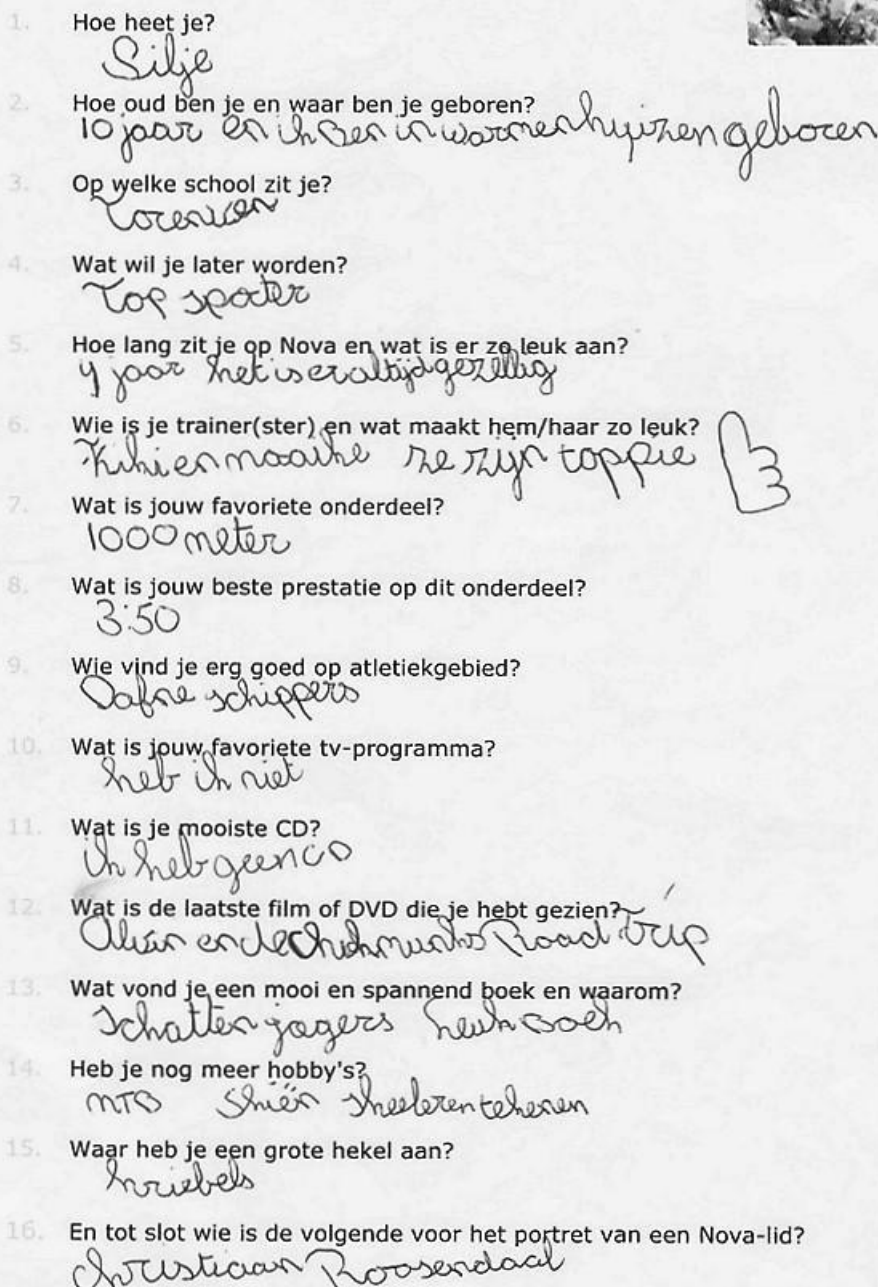 1. Hoe heet je?
Silje
2. Hoe oud ben je en waar ben je geboren?
10 jaar en ik ben in warmenhuizen geboren
3. Op welke school zit je?
Torenven
4. Wat wil je later worden?
Top sporter
5. Hoe lang zit je op Nova en wat is er zo leuk aan?
4 jaar het is er altijd gezellig
6. Wie is je trainer(ster) en wat maakt hem/haar zo leuk?
Kiki en maaike ze zijn toppie
7. Wat is jouw favoriete onderdeel?
1000 meter
8. Wat is jouw beste prestatie op dit onderdeel?
3:50
9. Wie vind je erg goed op atletiekgebied?
Dafne schippers
10. Wat is jouw favoriete tv-programma?
heb ik niet
11. Wat is je mooiste CD?
ik heb geen CD
12. Wat is de laatste film of DVD die je hebt gezien?
Alvin en de Chipmunks Road trip
13. Wat vond je een mooi en spannend boek en waarom?
Schatten jagers leuk boek
14. Heb je nog meer hobby's?
MTB skiën skeeleren tekenen
15. Waar heb je een grote hekel aan?
kriebels
16. En tot slot wie is de volgende voor het portret van een Nova-lid?
Christiaan Roosendaal